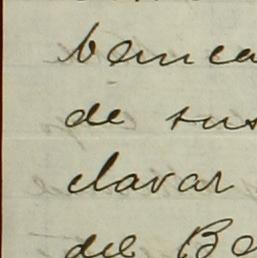 banca
de sus
clavar
del Be